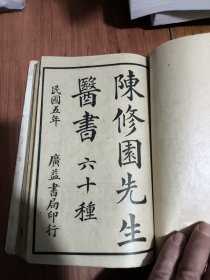 陳修園先生
醫書六十種
民國五年
廣益書局印行